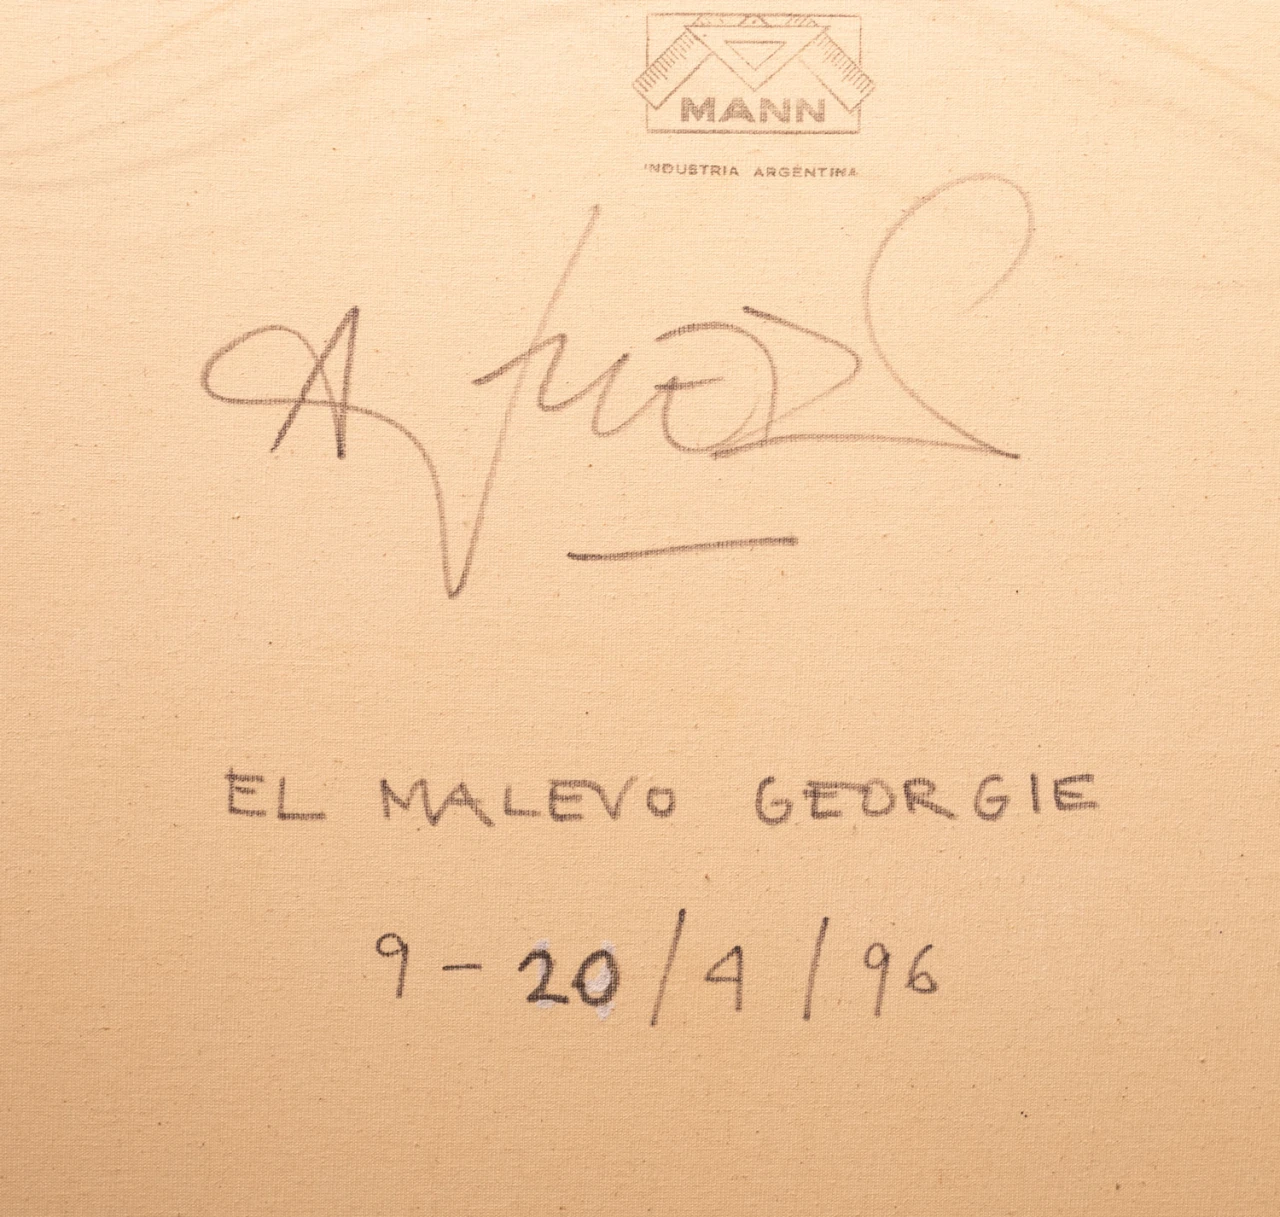 MANN
INDUSTRIA ARGENTINA
EL MALEVO GEORGIE
9-20/4/96